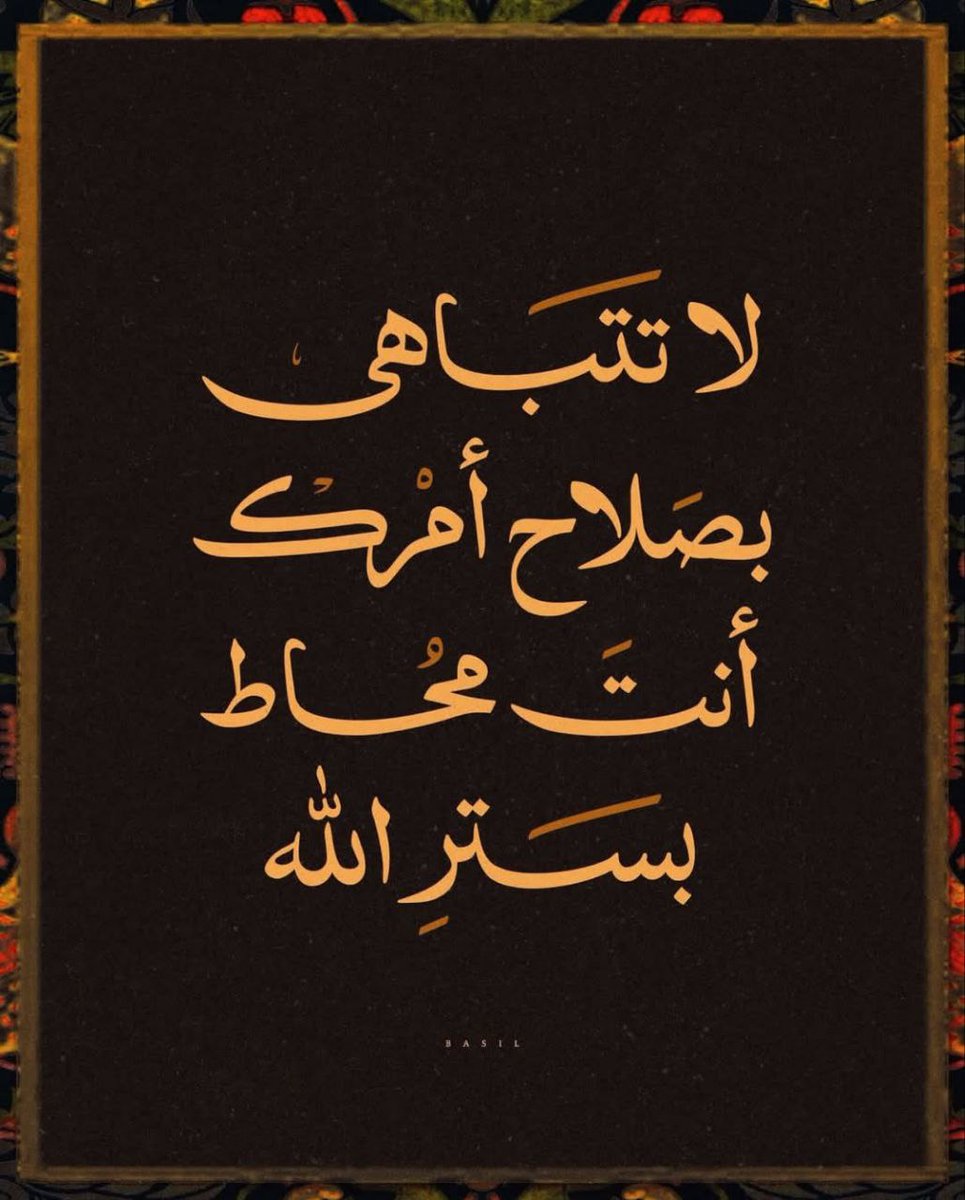 لا تتَباهى
بصَلاح أمْرك
أنتَ محُاط
بسَترِ الله
BASIL